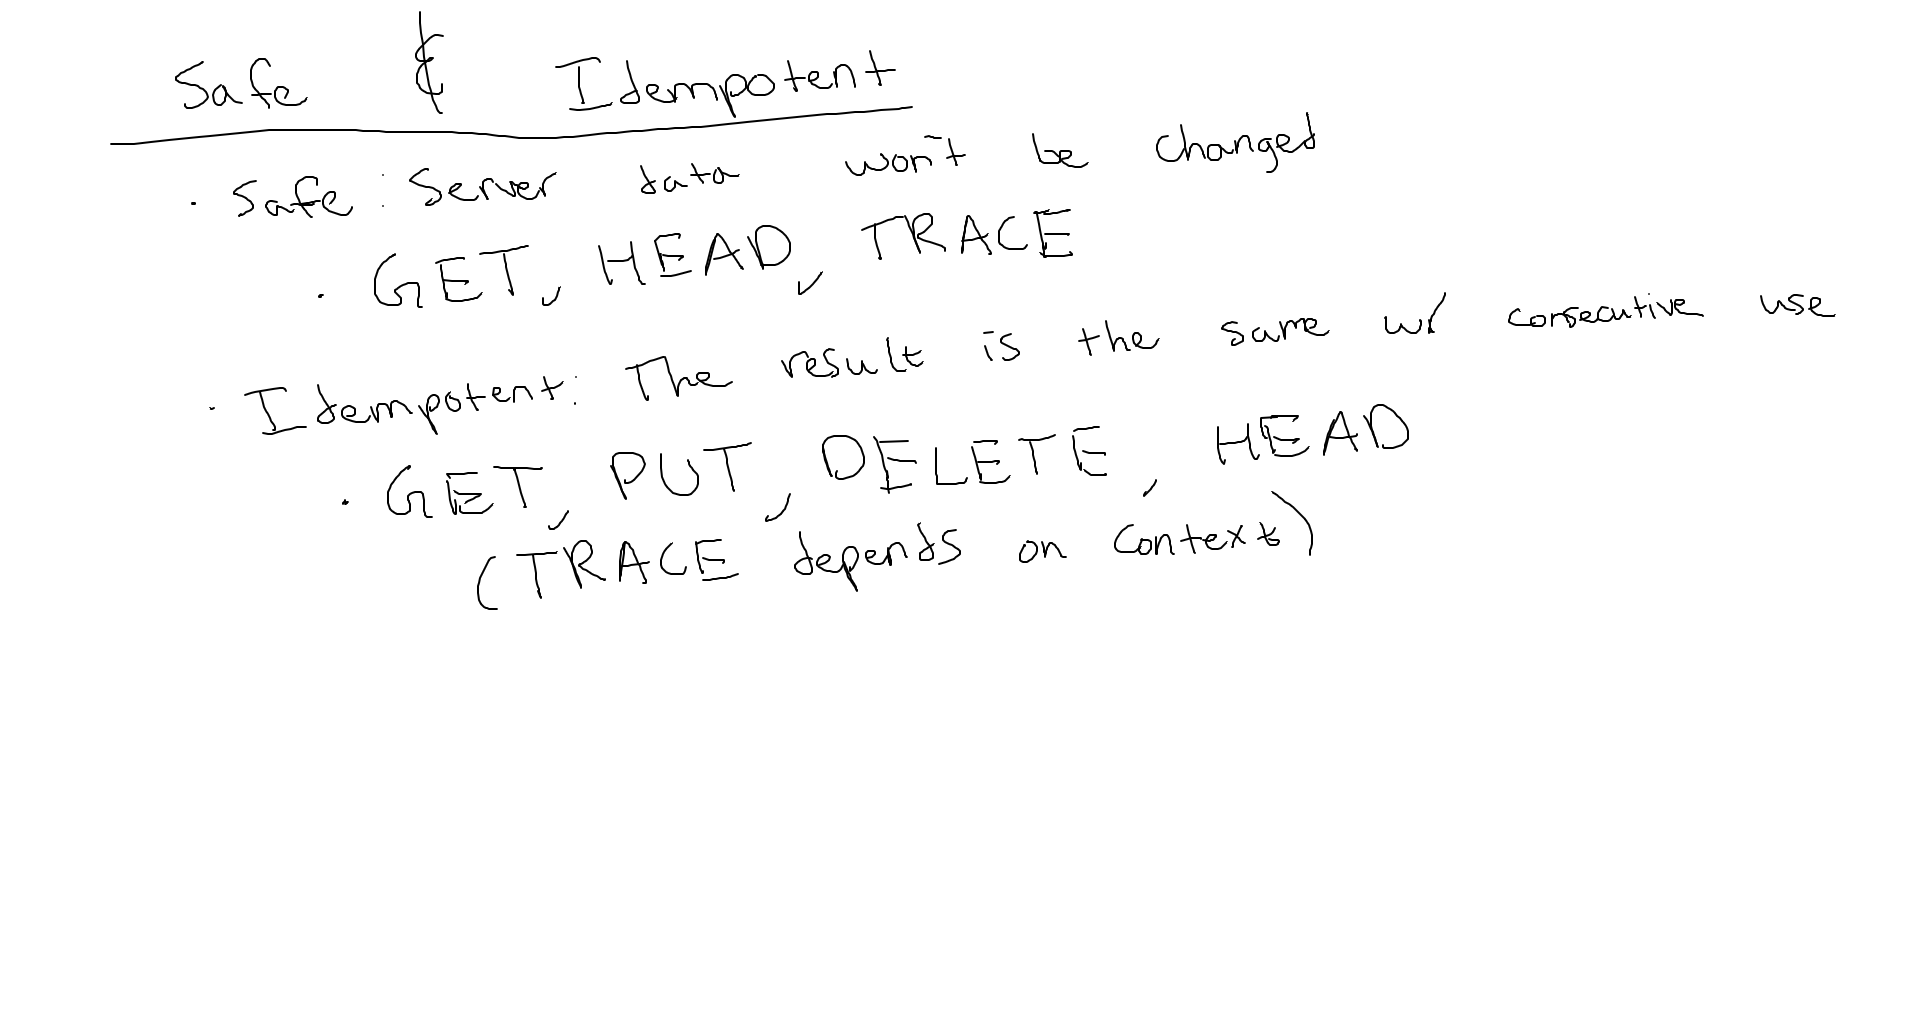 Safe & Idempotent
· Safe: Server data won't be changed
· GET, HEAD, TRACE
· Idempotent: The result is the same w/ consecutive use
· GET, PUT, DELETE, HEAD
(TRACE depends on context)